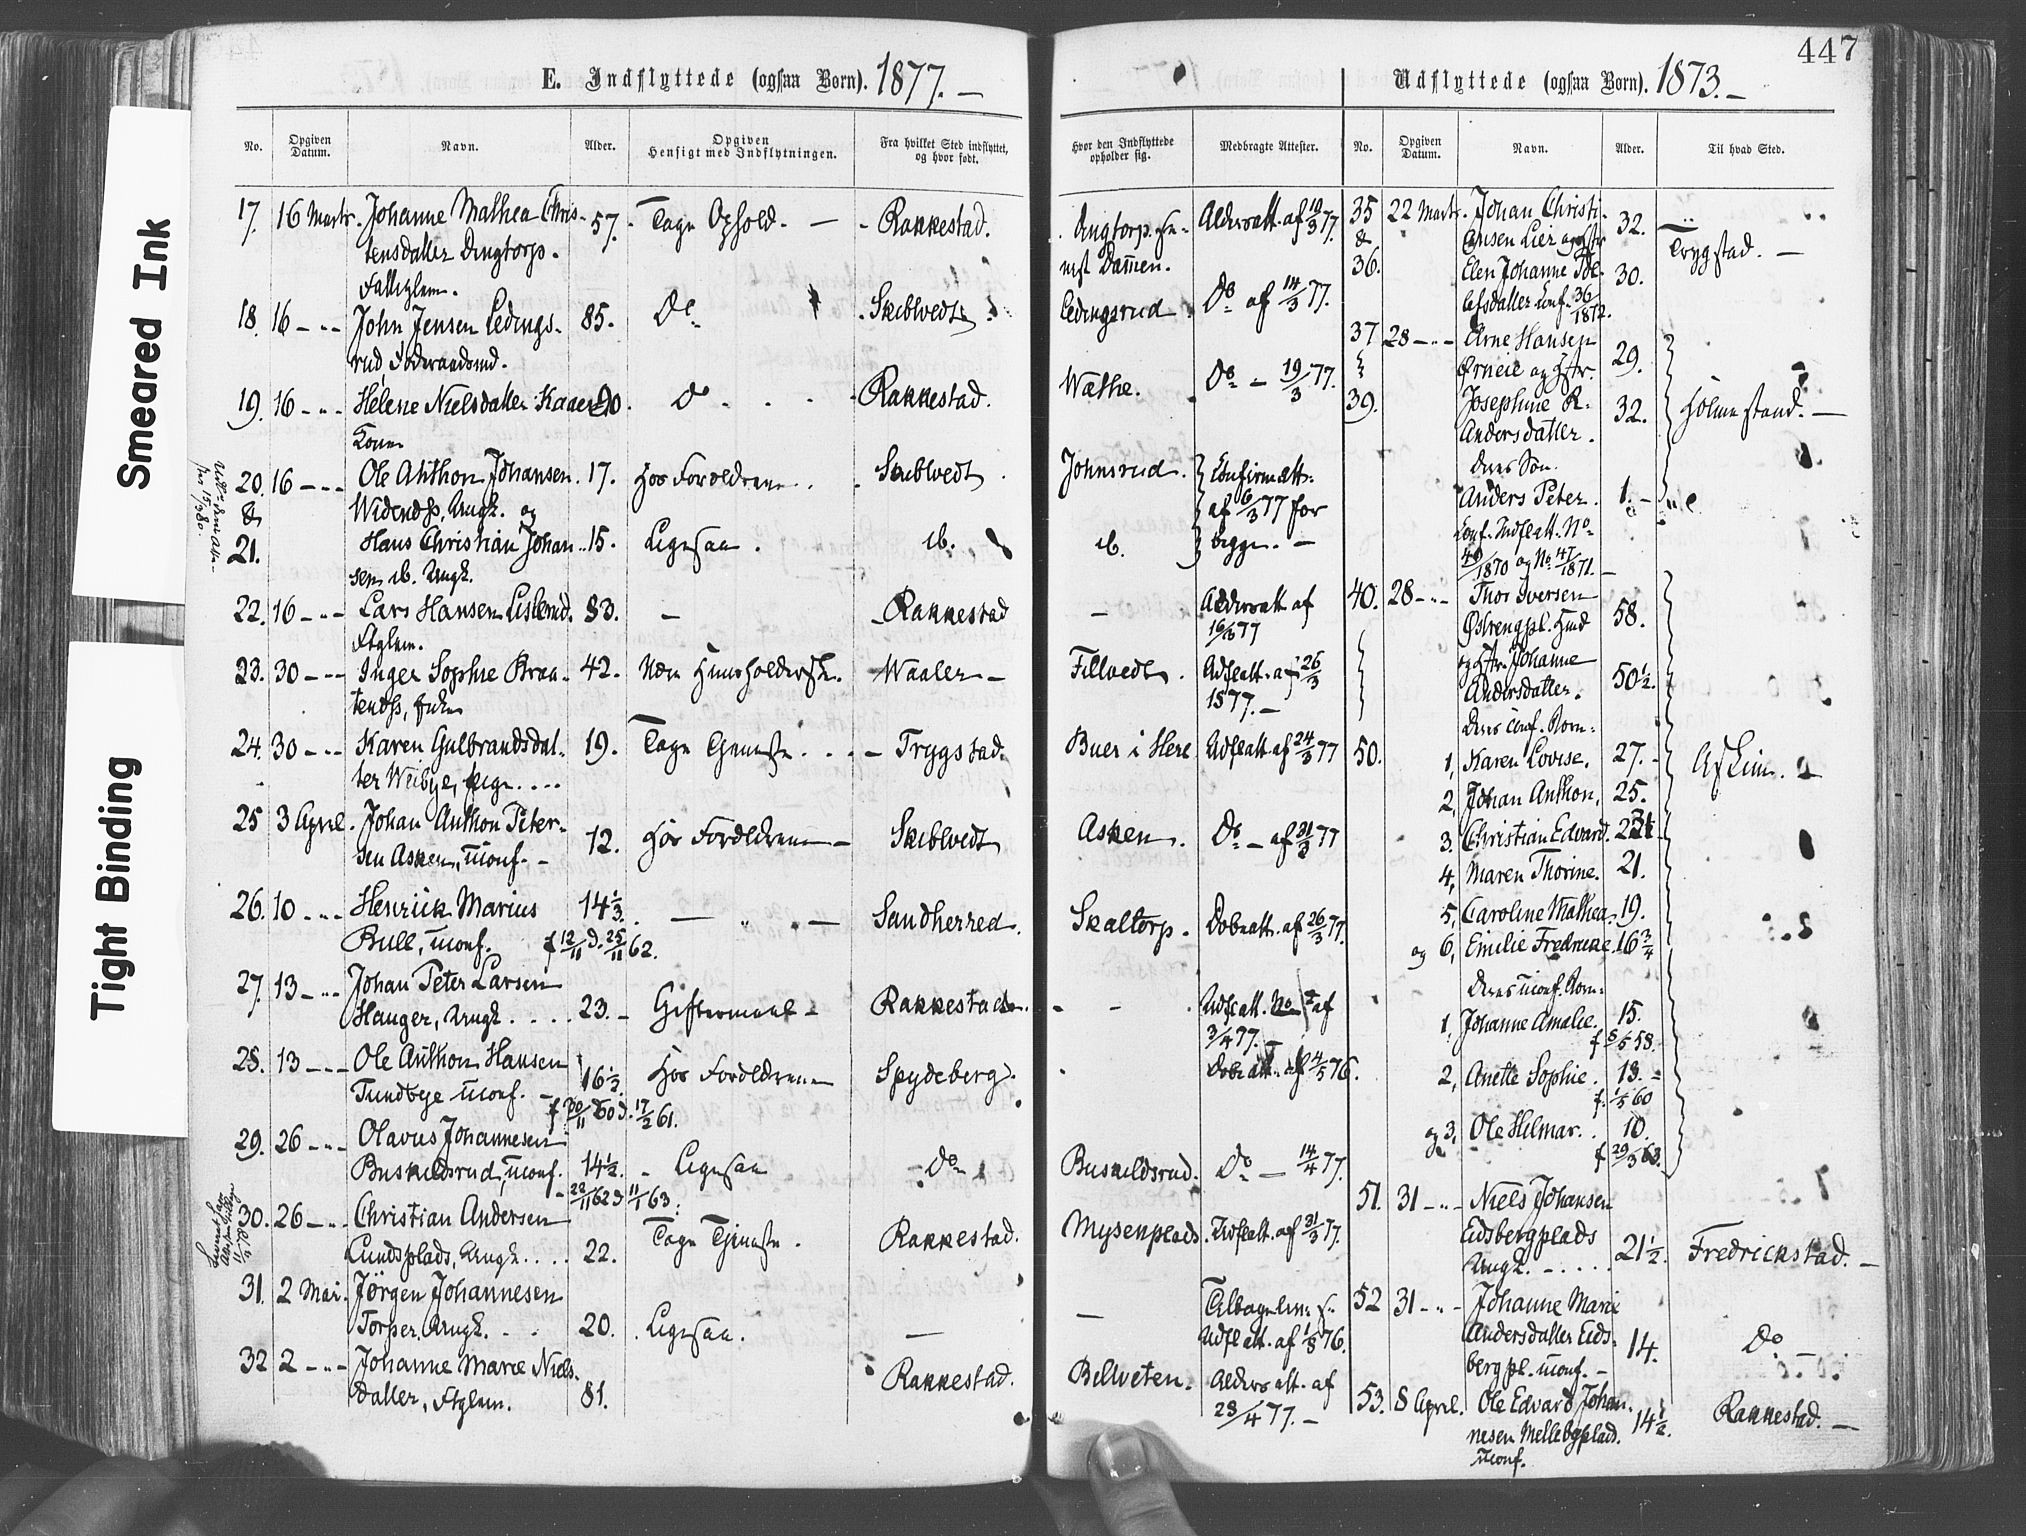 447
Smeared Ink
Tight Binding
E. Indflyttede (ogsaa Børn). 1877. —
No.
Opgiven Datum.
Navn.
Alder.
Opgiven Hensigt med Indflytningen.
Fra hvilket Sted indflyttet, og hvor født.
Hvor den Indflyttede opholder sig.
Medbragte Attester.
17. 16 Marts. Johanne Mathea Chris- 57. Tage Ophold. — Rakkestad. Aldersatt. af 10/3 77.
tensdatter
Dammen.
18. 16 — " — John Jensen Ledings- 85. Do Skibtvedt. Ledingsrud Do af 14/3 77.
rud
19. 16 — " — Helene Nielsdatter Do Rakkestad. Wathe. Do — 19/3 77.
20. 16 — " — Ole Anthon Johansen 17. Hos Forældrene Skibtvedt Johnsrud. Confirm.att.
& Ungk. og af 6/3 77 for
21. Hans Christian Johan- 15. Ligesaa. ib. ib. begge. —
sen ib. Ungk.
22. 16 — " — Lars Hansen 83. — Rakkestad — Aldersatt. af
16/3 77
23. 30 — " — Inger Sophie Braa- 42. Waaler — Udflatt. af 26/3
1877. —
24. 30 — " — Karen Gulbrandsdat- 19. Tage Tjeneste — Trygstad. Buer i Herl Udflatt. af 24/3 77
ter Weibye, Pige
25 3 April. Johan Anthon Peter- 12. Hos Forældrene — Skibtvedt Asken. Do — af 31/3 77
sen Asken, uconf. —
26. 10 — " — Henrick Marius 14 1/3. — " — Sandherred. Skaltorp. Dobeatt. af 26/3 77.
Bull, uconf. f 12/11 d. 25/11 62.
27. 13 — " — Johan Peter Larsen
Hauger, Ungk. 23. — Giftermaal — Rakkestad. — Udflatt. No af
3/4 77. —
28. 13 — " — Ole Anthon Hansen 16 1/3. Hos Forældrene Spydeberg. Dobeatt. af 4/5 76.
Tundbye uconf. — d. 17/2 61.
29. 26 — " — Olavus Johannesen
Buskildsrud, uconf. 14 1/2. — Ligesaa Do Buskildsrud. Do — 14/4 77.
28/11 62 d 11/1 63.
30. 26 — " — Christian Andersen
Lundsplads, Ungk. 22. Tage Tjeneste. Rakkestad. Mysenplads. Udflatt. af 31/3 77.
31. 2 Mai. Jørgen Johannesen
Torper, Ungk. 20. Ligesaa. — — Udflatt. af 1/8 76.
32 2 — " — Johanne Marie Niels-
datter, Ftglem. 81. Rakkestad. Biltveten. Aldersatt. af
28/4 77. —
Udflyttede (ogsaa Børn). 1873. —
No.
Opgiven Datum.
Navn.
Alder.
Til hvad Sted.
35 22 Marts. Johan Christi- 32. Trygstad. —
& ansen Lier og Hstr
36. Elen Johanne 30.
datter Conf. 36/1872.
37 28 — " — Arne Hansen 29.
Ørneie og Hstr.
39. Josephine R. 32. Holmestrand. —
Andersdatter.
deres Søn.
Anders Peter. 1. —
Conf. Indflatt. No
49/1870 og No 47/1871. —
40. 28 — " — Thor Iversen 58.
Østrengpl. Hmd
og Hstr. Johanne
Andersdatter. 50 1/2.
deres conf. Børn:
50. 1, Karen Lovise. 27. — Askim.
2, Johan Anthon, 25.
3. Christian Edvard.
4, Maren Thorine. 21.
5, Caroline Mathea. 19.
og 6, Emilie Fredrikke. 16 3/4
deres uconf. Børn:
1, Johanne Amalie. 15.
58.
2, Anette Sophie. 13. —
f. 1/5 60
og 3, Ole Hilmar. 10.
f 29/3 63.
51. 31 — " — Niels Johansen
Eidsbergplads
Ungk. — 21 1/2. Fredrickstad. —
52 31 — " — Johanne Marie
Andersdatter Eids- 14. Do —
berg pl. uconf. —
53. 8 April. Ole Edvard Johan- 14 1/2. Rakkestad. —
nesen Mellebyplads.
uconf.